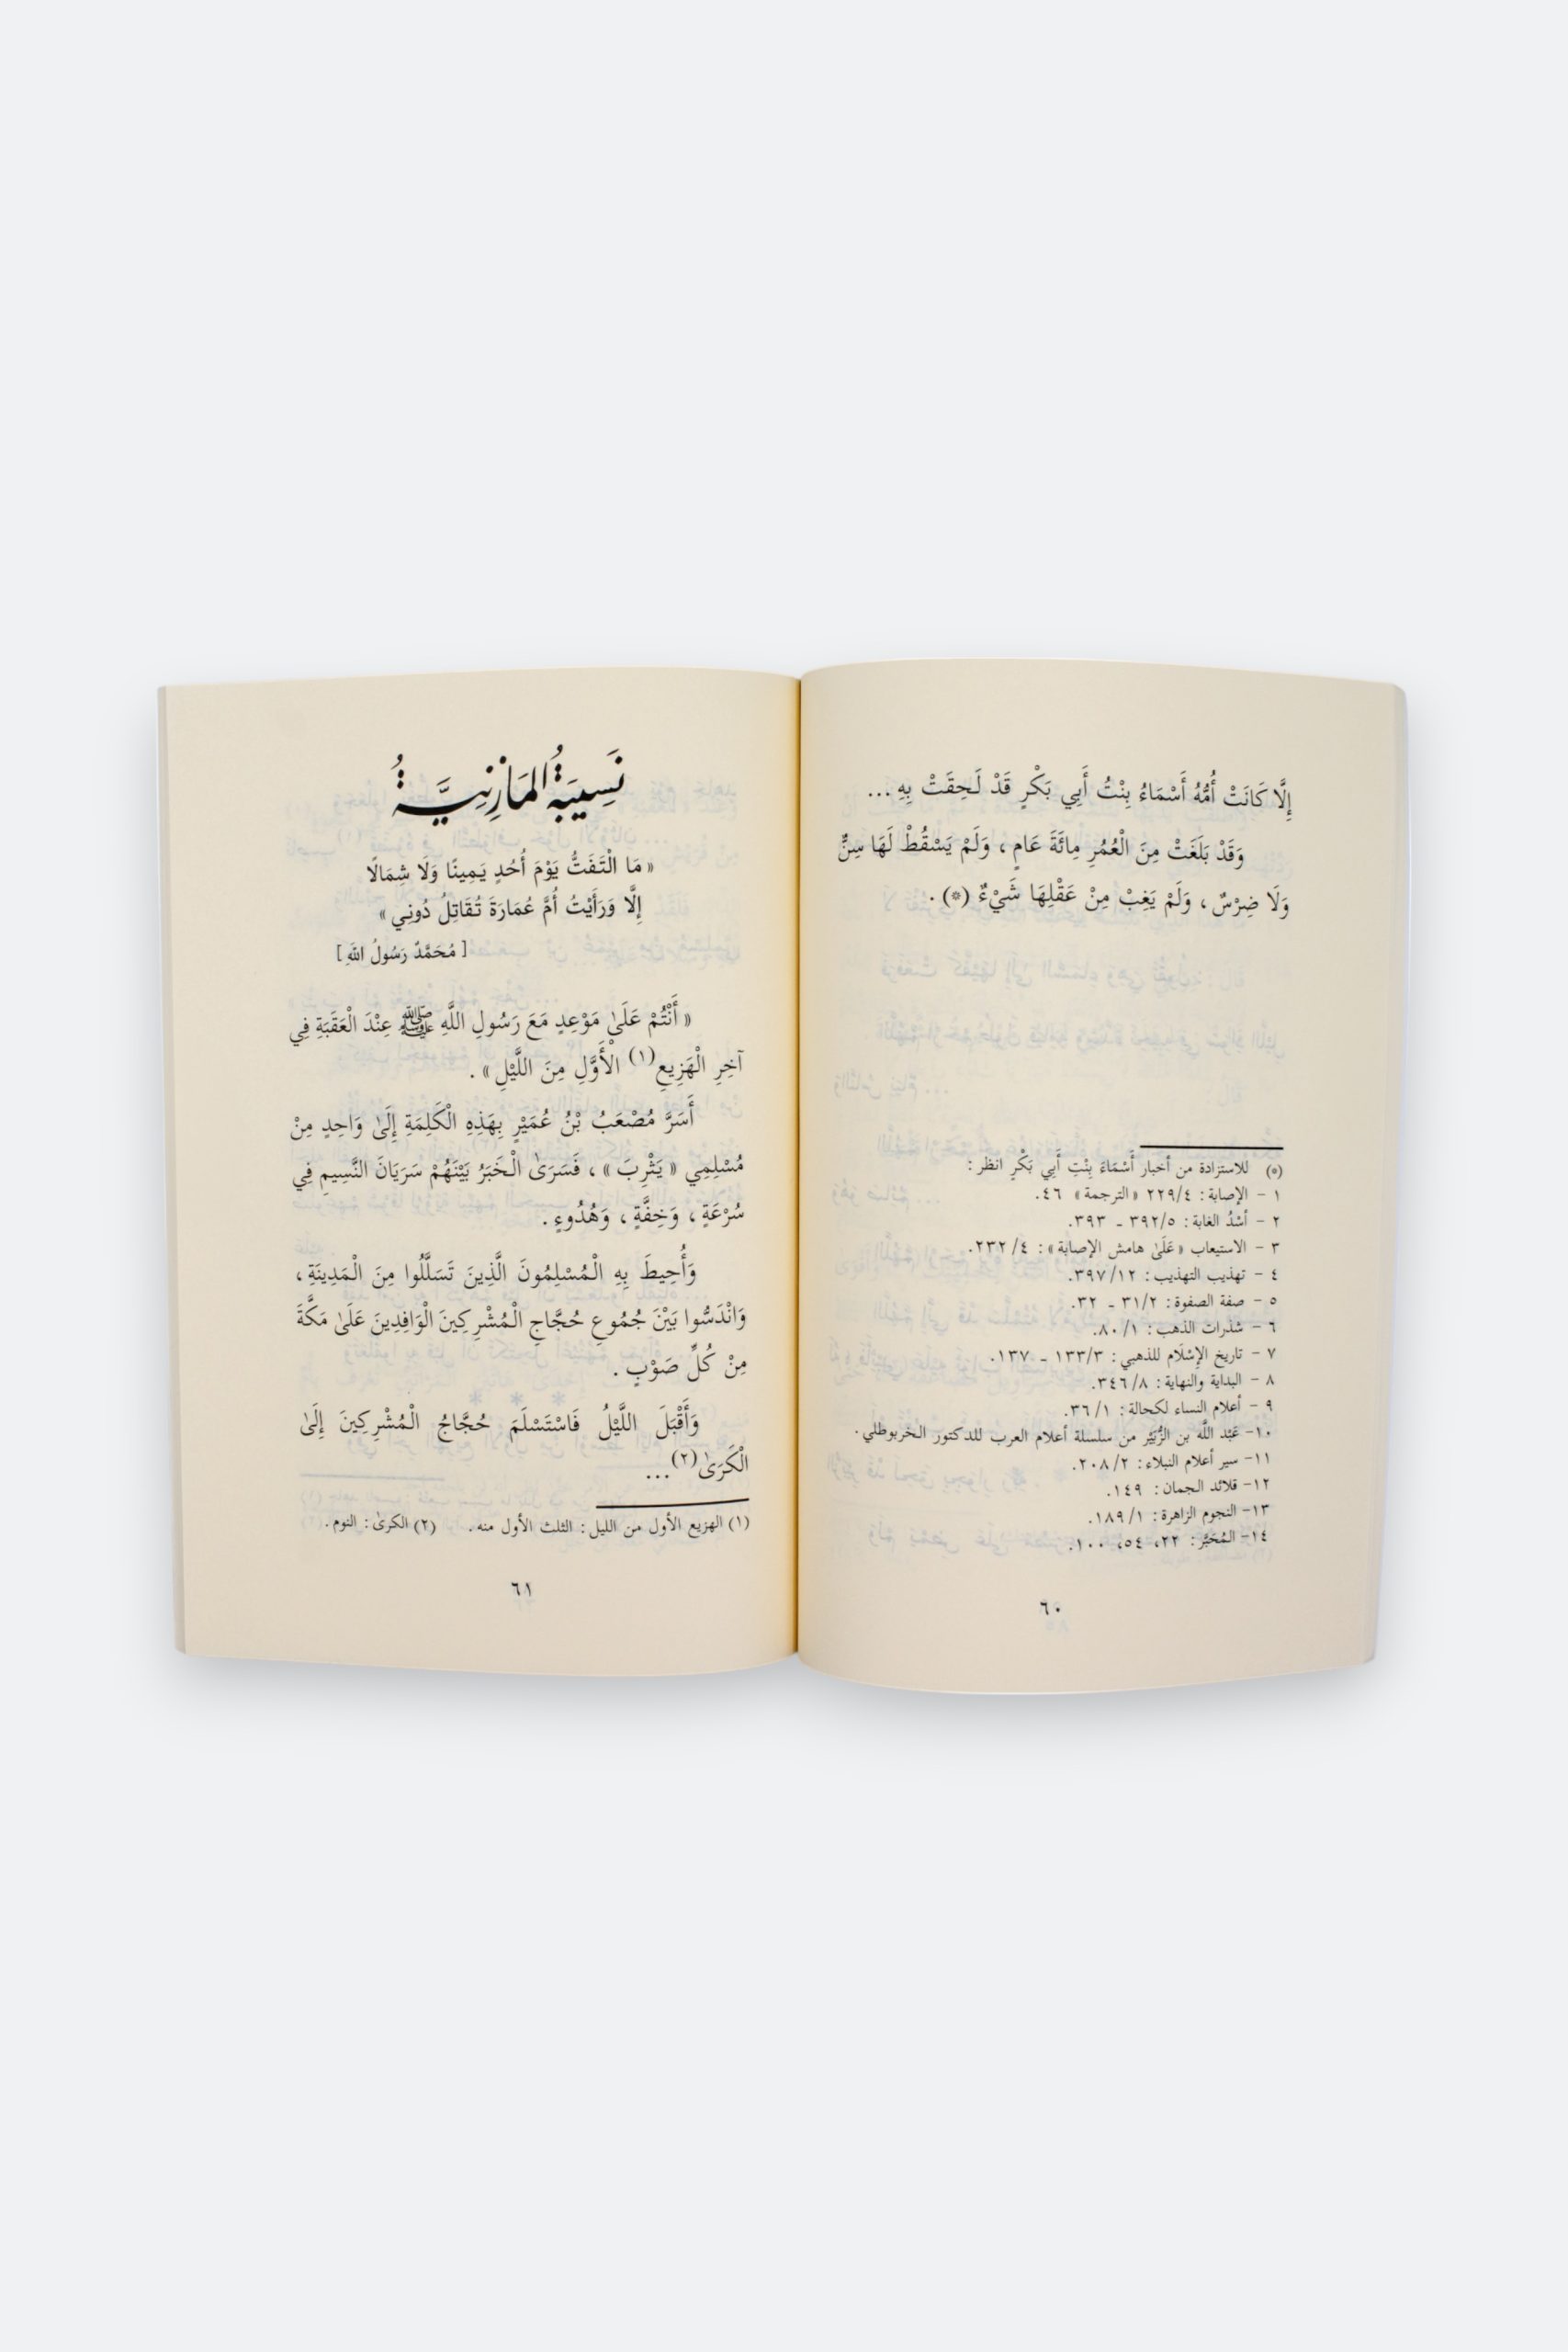 إِلَّا كَانَتْ أُمُّهُ أَسْمَاءُ بِنْتُ أَبِي بَكْرٍ قَدْ لَحِقَتْ بِهِ ...
وَقَدْ بَلَغَتْ مِنَ الْعُمُرِ مِائَةَ عَامٍ ، وَلَمْ يَسْقُطْ لَهَا سِنٌّ
وَلَا ضِرْسٌ ، وَلَمْ يَغِبْ مِنْ عَقْلِهَا شَيْءٌ (*) .
(*) للاستزادة من أخبار أَسْمَاءَ بِنْتِ أَبِي بَكْرٍ انظر :
١ - الإصابة : ٢٢٩/٤ « الترجمة » ٤٦.
٢ - أسْدُ الغابة : ٣٩٢/٥ - ٣٩٣.
٣ - الاستيعاب « عَلَىٰ هامش الإصابة » : ٢٣٢/٤.
٤ - تهذيب التهذيب : ٣٩٧/١٢.
٥ - صفة الصفوة : ٣١/٢ - ٣٢.
٦ - شذرات الذهب : ٨٠/١.
٧ - تاريخ الإِسْلَام للذهبي : ١٣٣/٣ - ١٣٧.
٨ - البداية والنهاية : ٣٤٦/٨.
٩ - أعلام النساء لكحالة : ٣٦/١.
١٠- عَبْد اللَّه بن الزُّبَيْر من سلسلة أعلام العرب للدكتور الخربوطلي .
١١- سير أعلام النبلاء : ٢٠٨/٢.
١٢- قلائد الجمان : ١٤٩.
١٣- النجوم الزاهرة : ١٨٩/١.
١٤- المُحَبَّر : ٢٢، ٥٤، ١٠٠.
٦٠
نَسِيبَةُ المَازِنِيَّةُ
« مَا الْتَفَتُّ يَوْمَ أُحُدٍ يَمِينًا وَلَا شِمَالًا
إِلَّا وَرَأَيْتُ أُمَّ عُمَارَةَ تُقَاتِلُ دُونِي »
[ مُحَمَّدٌ رَسُولُ اللهِ ]
« أَنْتُمْ عَلَىٰ مَوْعِدٍ مَعَ رَسُولِ اللَّهِ ﷺ عِنْدَ الْعَقَبَةِ فِي
آخِرِ الْهَزِيعِ (١) الْأَوَّلِ مِنَ اللَّيْلِ » .
أَسَرَّ مُصْعَبُ بْنُ عُمَيْرٍ بِهَذِهِ الْكَلِمَةِ إِلَىٰ وَاحِدٍ مِنْ
مُسْلِمِي « يَثْرِبَ » ، فَسَرَىٰ الْخَبَرُ بَيْنَهُمْ سَرَيَانَ النَّسِيمِ فِي
سُرْعَةٍ ، وَخِفَّةٍ ، وَهُدُوءٍ .
وَأُحِيطَ بِهِ الْمُسْلِمُونَ الَّذِينَ تَسَلَّلُوا مِنَ الْمَدِينَةِ ،
وَانْدَسُّوا بَيْنَ جُمُوعِ حُجَّاجِ الْمُشْرِكِينَ الْوَافِدِينَ عَلَىٰ مَكَّةَ
مِنْ كُلِّ صَوْبٍ .
وَأَقْبَلَ اللَّيْلُ فَاسْتَسْلَمَ حُجَّاجُ الْمُشْرِكِينَ إِلَىٰ
الْكَرَىٰ (٢) ...
(١) الهزيع الأول من الليل : الثلث الأول منه . (٢) الكرىٰ : النوم .
٦١